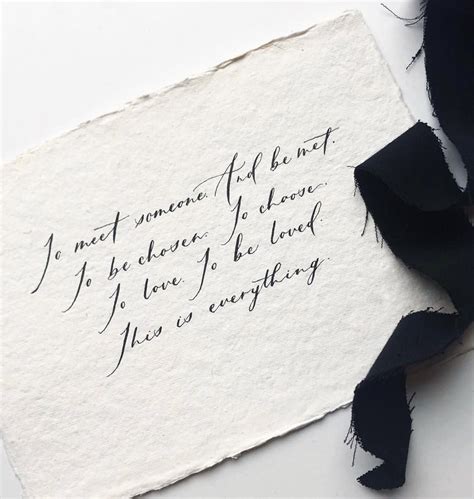 To meet someone. And be met.
To be chosen. To choose.
To love. To be loved.
This is everything.